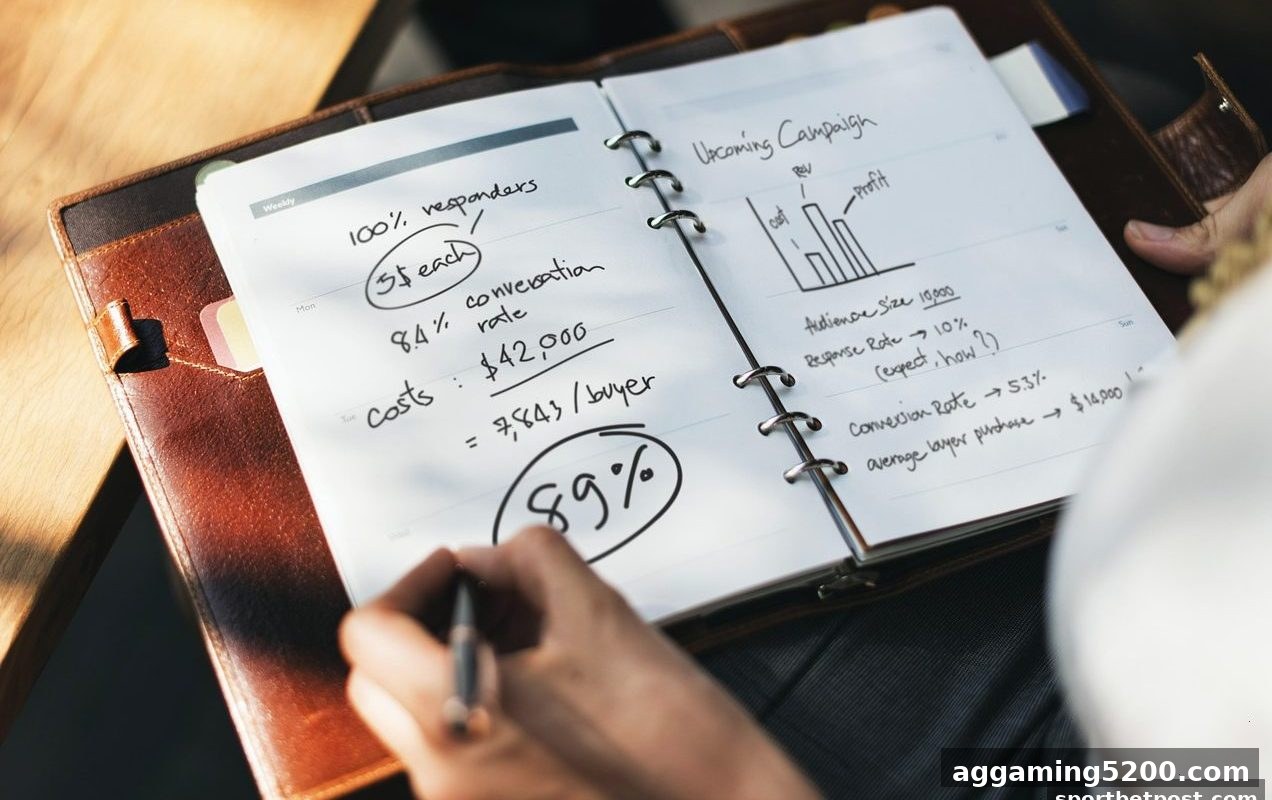 Weekly
100% responders
5$ each
Mon
8.4% conversation
rate
Tue
costs : $42,000
= 7,843 /buyer
89%
Upcoming Campaign
Rev
cost
profit
Sat
Audience Size 10,000
Response Rate → 10%
(expect, how?)
Sun
Conversion Rate → 5.3%
average buyer purchase → $14,000
aggaming5200.com
sportbetpost.com